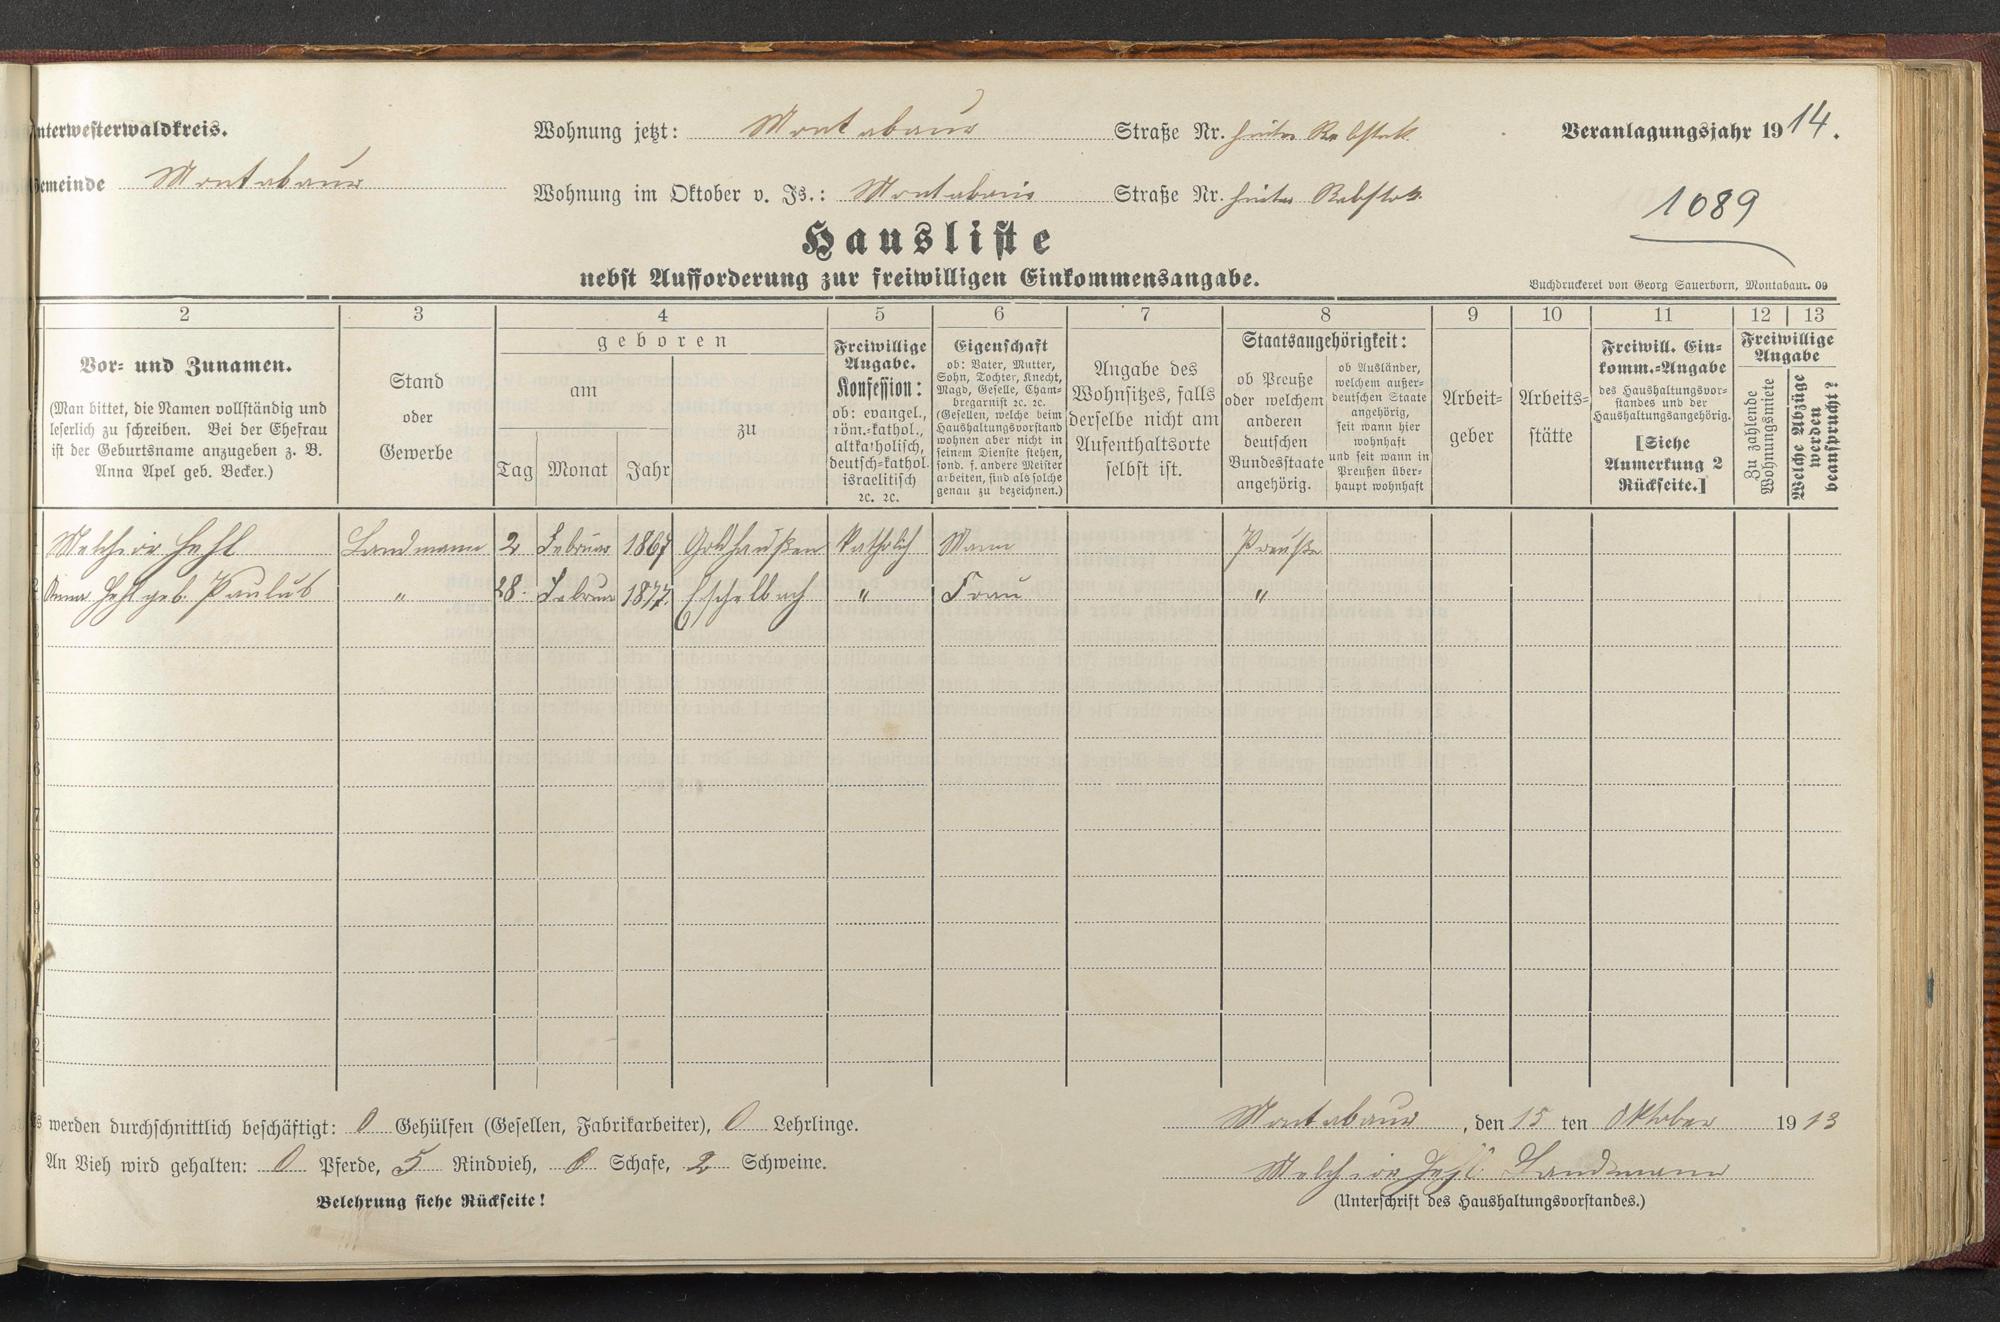 nterwesterwaldkreis.
Wohnung jetzt: Montabaur Straße Nr. hinter Rebstock
Veranlagungsjahr 1914.
emeinde Montabaur
Wohnung im Oktober v. Js.: Montabaur Straße Nr. hinter Rebstock
1089
Hausliste
nebst Aufforderung zur freiwilligen Einkommensangabe.
Buchdruckerei von Georg Sauerborn, Montabaur. 09
2 3 4 5 6 7 8 9 10 11 12 13
Vor- und Zunamen.
(Man bittet, die Namen vollständig und
leserlich zu schreiben. Bei der Ehefrau
ist der Geburtsname anzugeben z. B.
Anna Apel geb. Becker.)
Stand
oder
Gewerbe
geboren
am
zu
Tag Monat Jahr
Freiwillige
Angabe.
Konfession:
ob: evangel.,
röm.-kathol.,
altkatholisch,
deutsch-kathol.
israelitisch
ꝛc. ꝛc.
Eigenschaft
ob: Vater, Mutter,
Sohn, Tochter, Knecht,
Magd, Geselle, Cham-
bregarnist ꝛc. ꝛc.
(Gesellen, welche beim
Haushaltungsvorstand
wohnen aber nicht in
seinem Dienste stehen,
sond. f. andere Meister
arbeiten, sind als solche
genau zu bezeichnen.)
Angabe des
Wohnsitzes, falls
derselbe nicht am
Aufenthaltsorte
selbst ist.
Staatsangehörigkeit:
ob Preuße
oder welchem
anderen
deutschen
Bundesstaate
angehörig.
ob Ausländer,
welchem außer-
deutschen Staate
angehörig,
seit wann hier
wohnhaft
und seit wann in
Preußen über-
haupt wohnhaft
Arbeit-
geber
Arbeits-
stätte
Freiwill. Ein-
komm.-Angabe
des Haushaltungsvor-
standes und der
Haushaltungsangehörig.
[Siehe
Anmerkung 2
Rückseite.]
Freiwillige
Angabe
Zu zahlende
Wohnungsmiete
Welche Abzüge
werden
beansprucht?
Melchior Hehl Landmann 2 Februar 1867 Goldhaußen katholich Mann Preuße
2 Anna Hehl geb. Paulus " 28. Februar 1877. Eschelbach " Frau "
3
4
5
6
7
8
9
1
2
s werden durchschnittlich beschäftigt: 0 Gehülfen (Gesellen, Fabrikarbeiter), 0 Lehrlinge.
An Vieh wird gehalten: 0 Pferde, 5 Rindvieh, 0 Schafe, 2 Schweine.
Belehrung siehe Rückseite!
Montabaur, den 15 ten Oktober 1913
Melchior Hehl Landmann
(Unterschrift des Haushaltungsvorstandes.)